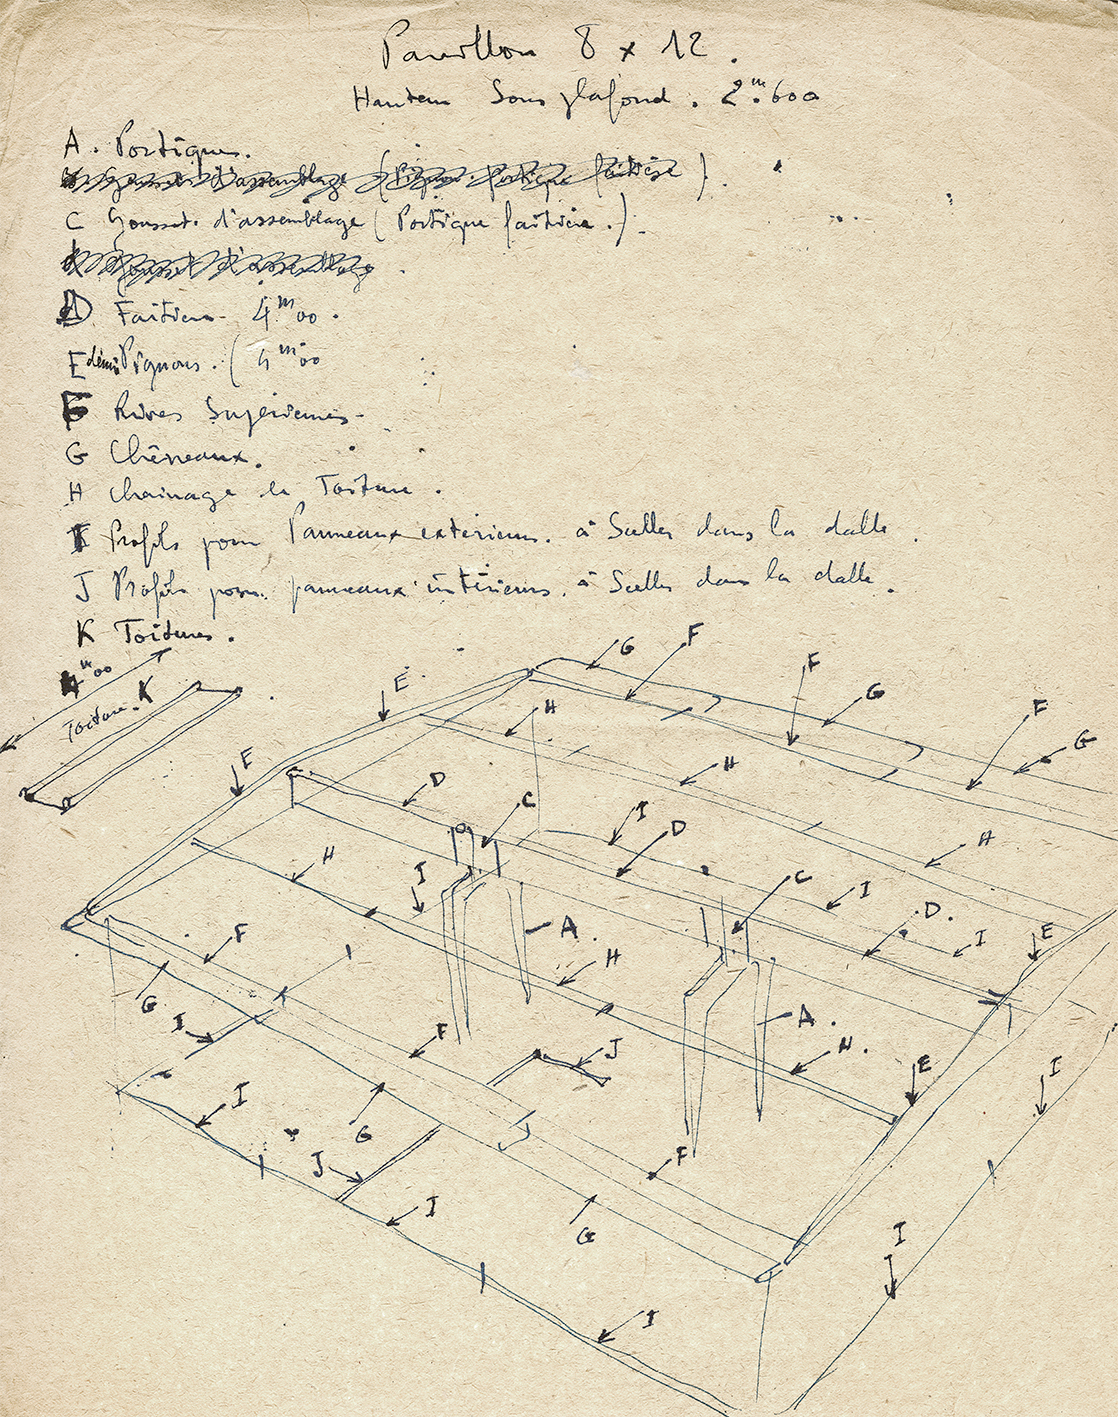 Pavillon 8 x 12.
Hauteur Sous plafond. 2.m600
A. Portiques.
Gousset d'assemblage (Pignon. Portique faîtière).
C Gousset d'assemblage (Portique faîtière.).
D Faîtière 4m00.
E demi Pignons. (4m00
F Rives Supérieures
G Chêneaux.
H Chainage de Toiture.
I Profils pour Panneaux extérieurs. à Sceller dans la dalle.
J Profils pour panneaux intérieurs. à Sceller dans la dalle.
K Toitures.
4m00
Toiture. K
G
F
E
F
G
F
G
H
E
H
D
C
I
D
H
H
I
C
I
D.
I
E
F
A.
H
G
I
A.
F
J
H.
E
I
I
G
J
F
I
G
I
I